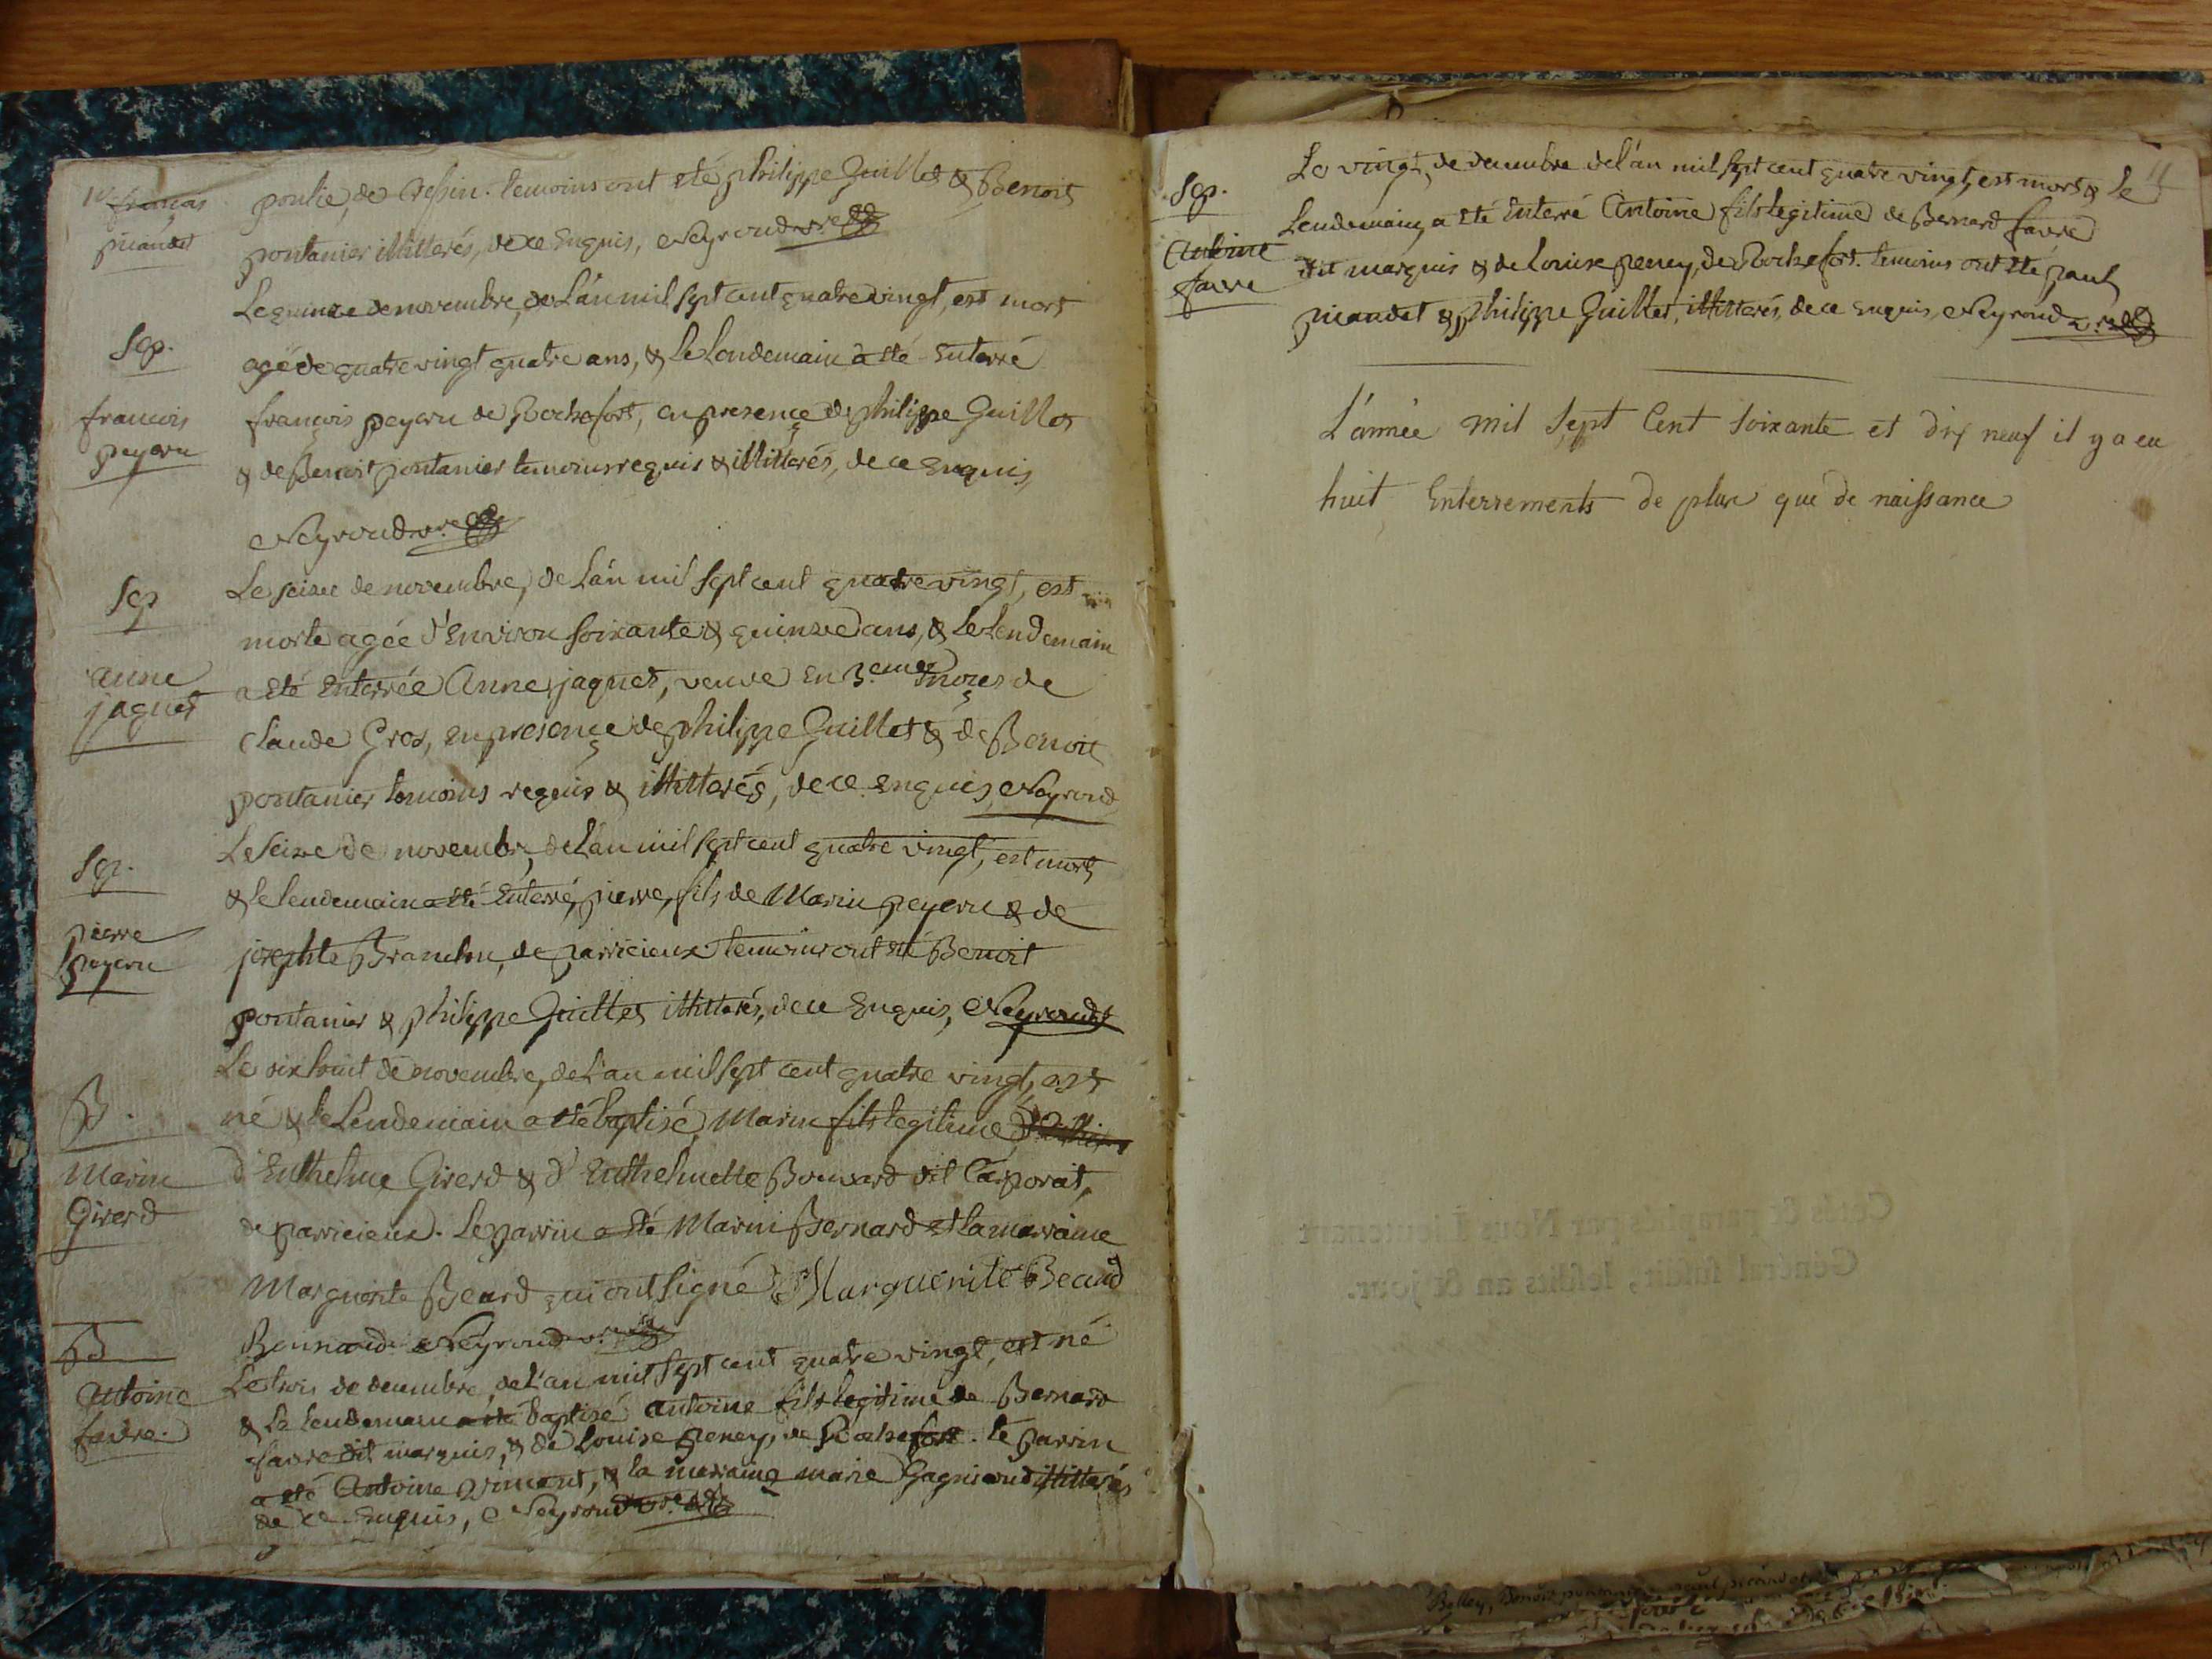 françois
picandet
poulie, de Cressin. temoins ont eté philippe Guillet & Benoit
pontanier illitterés, de ce Enquis, Neyroud v.re
Sep.
françois
peycru
Le quinze de novembre, de L'an mil sept cent quatre vingt, est mort
agé de quatre vingt quatre ans, & le Lendemain a eté Enterré
françois peycru de Rochefort, en presence de philippe Guillet
& de Benoit pontanier temoins requis & illitterés, de ce Enquis,
Neyroud v.re
Sep
anne
jaquet
Le seize de novembre, de L'an mil sept cent quatre vingt, est
morte agée d'Environ soixante & quinze ans, & le Lendemain
a eté Enterrée Anne jaquet, veuve en 3.emes noces de
Claude Gros, en presence de philippe Guillet & de Benoit
pontanier temoins requis & illitterés, de ce enquis, Neyroud
Sep.
pierre
peycru
Le Seize de novembre, de L'an mil sept cent quatre vingt, est mort
& le lendemain a eté Enterré, pierre, fils de Marin peycru & de
josephte, de parricieux temoins ont eté Benoit
pontanier & philippe Guillet illitterés, de ce Enquis, Neyroud
B.
Marin
Girerd
Le dix huit de novembre, de L'an mil sept cent quatre vingt, est
né & le Lendemain a eté baptisé, Marin fils legitime
d'Enthelme Girerd & d'Enthelmette Bouvard dit Caporat,
de parricieux. Le parrin a eté Marin Bernard et la marraine
Marguerite Beard qui ont signé Marguerite Beaud
Bernard Neyroud v.re
B
Antoine
favre.
Le trois de decembre, de L'an mil sept cent quatre vingt, est né
& le lendemain a eté baptisé antoine fils legitime de Bernard
favre dit marquis, & de Louise peney, de Rochefort. le parrin
a eté Antoine vincent, & la marraine marie Gagnioud illitterés
de ce Enquis, Neyroud v.re
Sep.
Antoine
favre
Le vingt, de decembre de L'an mil sept cent quatre vingt, est mort & le
Lendemain, a eté Enterré Antoine fils legitime de Bernard favre
dit marquis & de Louise peney, de Rochefort. temoins ont eté paul
picandet & philippe Guillet, illitterés, de ce enquis, Neyroud v.re
L'année mil sept Cent soixante et dix neuf il y a eu
huit Enterrements de plus que de naissance
Cotés & paraphés par Nous Lieutenant
Général susdit, lesdits an & jour.